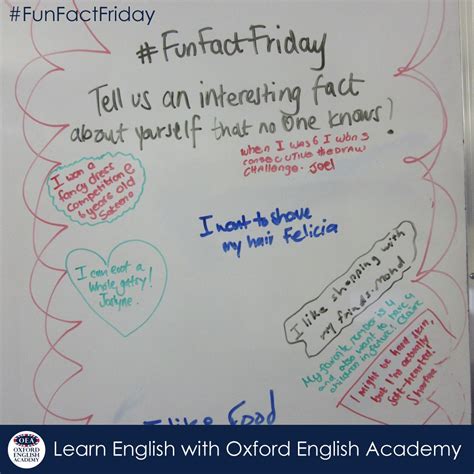 #FunFactFriday
#FunFactFriday
Tell us an interesting fact
about yourself that no one knows!
when I was 6 I won 3
consecutive
CHALLENGE. Joel
I won a
fancy dress
competition @
6 years old
I want to shave
my hair Felicia
I can eat a
whole
I like shopping with
my friends-
My favorite number is 4
and also want to have 4
children in future! Claire
I might be
but I'm actually
soft-hearted!
I like Food
OEA
OXFORD
ENGLISH
ACADEMY
Learn English with Oxford English Academy